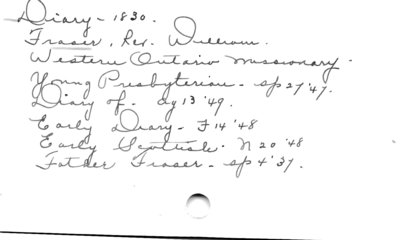 Diary - 1830.
Fraser, Rev. William.
Western Ontario Missionary.
Young Presbyterian - Sp 27 '47.
Diary of - Ag 13 '49.
Early Diary - F 14 '48
Early Scottish - N 20 '48
Father Fraser - Sp 4 '37.